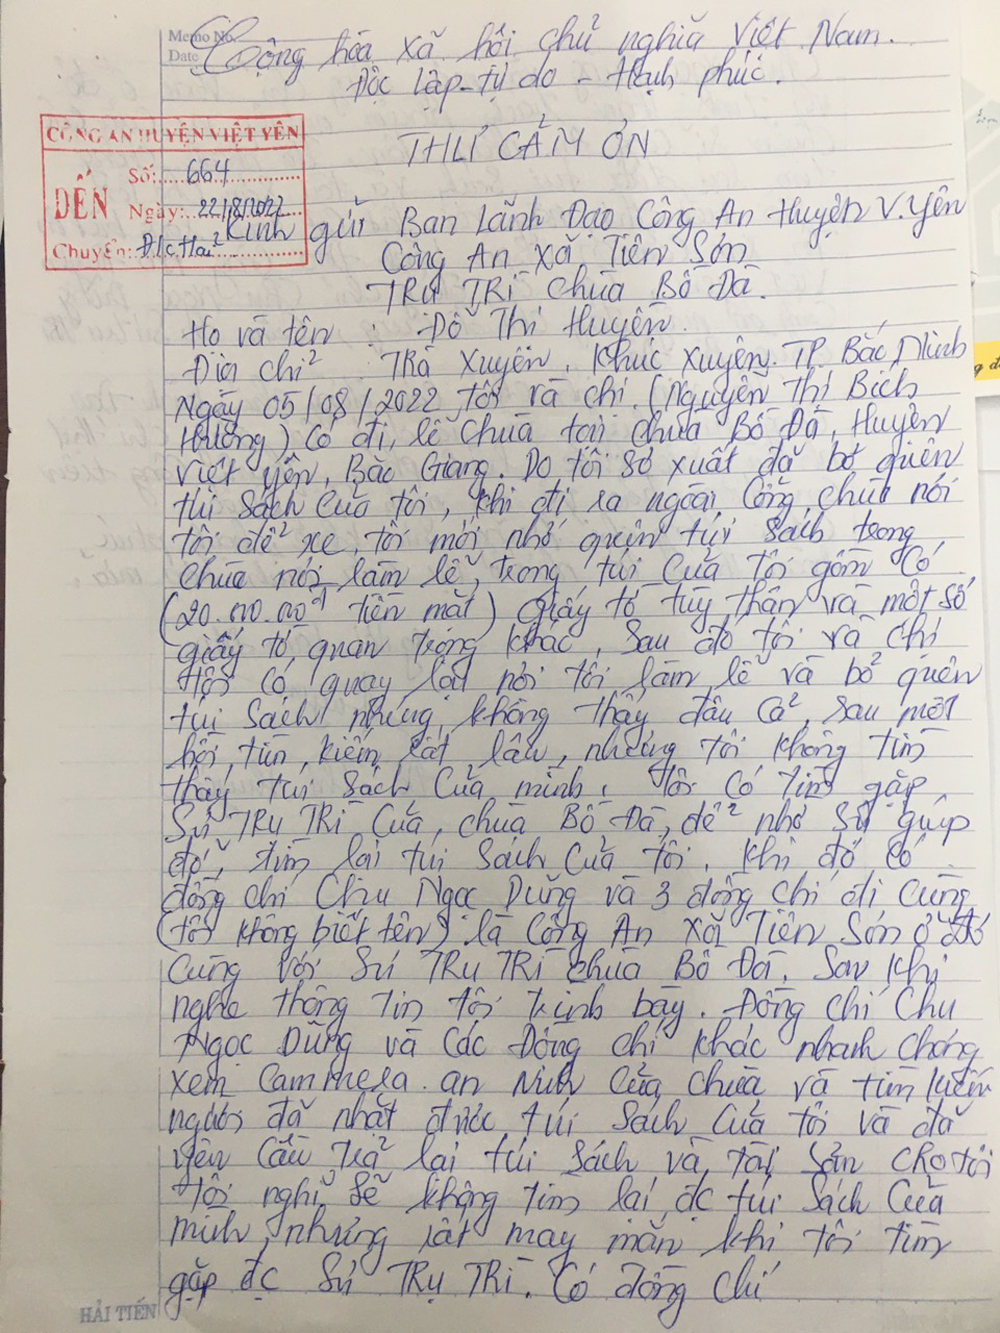 Memo No.
Date
Cộng hòa xã hội chủ nghĩa Việt Nam.
Độc lập - tự do - Hạnh phúc.
THƯ CẢM ƠN
CÔNG AN HUYỆN VIỆT YÊN
ĐẾN
Số: 664
Ngày: 22/8/2022
Chuyển: Đ/c Hải
Kính gửi Ban Lãnh Đạo Công An Huyện V.Yên
Công An Xã Tiên Sơn
TRỤ TRÌ Chùa Bổ Đà.
Họ và tên : Đỗ Thị Huyên.
Địa chỉ Trà Xuyên, Khúc Xuyên. TP. Bắc Ninh
Ngày 05/08/2022 tôi và chị (Nguyễn Thị Bích
Hường) Có đi lễ chùa tại chùa Bổ Đà, Huyện
Việt yên, Bắc Giang. Do tôi sơ xuất đã bỏ quên
túi sách của tôi, khi đi ra ngoài cổng chùa nơi
tôi để xe, tôi mới nhớ quên túi sách trong
chùa nơi làm lễ, trong túi của tôi gồm có
(20.00.00đ tiền mặt) giấy tờ tùy thân và một số
giấy tờ quan trọng khác, Sau đó tôi và chị
tôi có quay lại nơi tôi làm lễ và bỏ quên
túi sách nhưng không thấy đâu cả, sau một
hồi tìm kiếm rất lâu, nhưng tôi không tìm
thấy túi sách của mình. tôi có tìm gặp
Sư TRỤ TRÌ Của chùa Bổ Đà, để nhờ sư giúp
đỡ, tìm lại túi sách của tôi. Khi đó có
đồng chí Chu Ngọc Dũng và 3 đồng chí đi cùng
(tôi không biết tên) là Công An Xã Tiên Sơn ở đó
Cùng với Sư TRỤ TRÌ chùa Bổ Đà. Sau khi
nghe thông tin tôi trình bày. Đồng chí Chu
Ngọc Dũng và các Đồng chí khác nhanh chóng
xem Cammera an ninh của chùa và tìm kiếm
người đã nhặt được túi sách của tôi và đã
yên cầu trả lại túi sách và tài sản cho tôi
tôi nghĩ sẽ không tìm lại đc túi sách của
mình, nhưng rất may mắn khi tôi tìm
gặp đc Sư TRỤ TRÌ. Có đồng chí
HẢI TIẾN